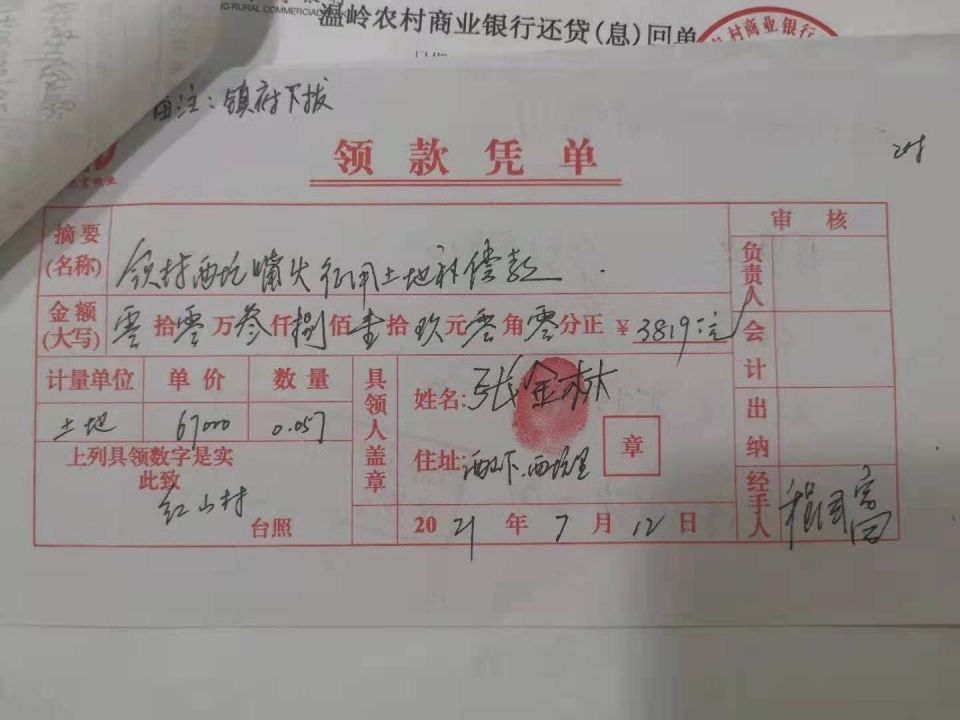 NG RURAL COMMERCIAL
温岭农村商业银行还贷(息)回单
村商业银行
备注:镇府下拨
领款凭单
摘要(名称) 领村西坑嘴头征用土地补偿款
审核
负责人
金额(大写) 零拾零万叁仟捌佰壹拾玖元零角零分正 ¥3819
会计
计量单位 单价 数量
土地 67000 0.057
具领人盖章
姓名:张金林
章
住址: 西坑里
出纳
上列具领数字是实
此致
红山村
台照
2021年7月12日
经手人